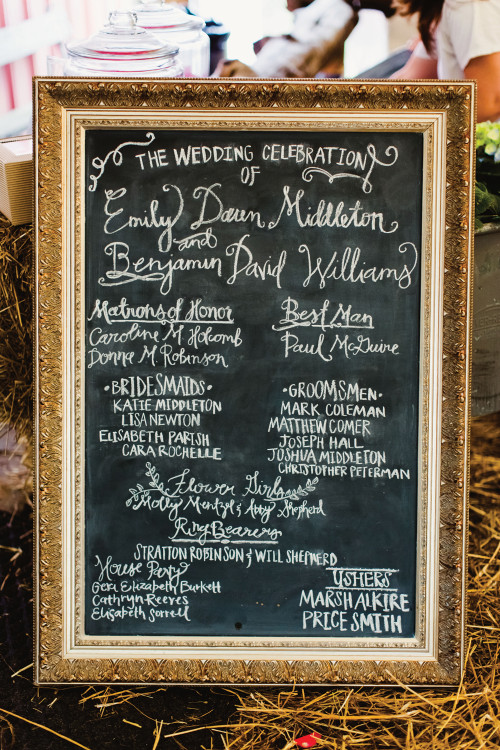 THE WEDDING CELEBRATION
OF
Emily Dawn Middleton
and
Benjamin David Williams
Matrons of Honor
Caroline M Holcomb
Donna M Robinson
Best Man
Paul McGuire
·BRIDESMAIDS·
KATIE MIDDLETON
LISA NEWTON
ELISABETH PARISH
CARA ROCHELLE
·GROOMSMEN·
MARK COLEMAN
MATTHEW COMER
JOSEPH HALL
JOSHUA MIDDLETON
CHRISTOPHER PETERMAN
Flower Girls
Molly Mentzel & Abby Shepherd
Ring Bearers
STRATTON ROBINSON & WILL SHEPHERD
House Party
Gera Elizabeth Burkett
Cathryn Reeves
Elisabeth Sorrell
USHERS
MARSH ALKIRE
PRICE SMITH